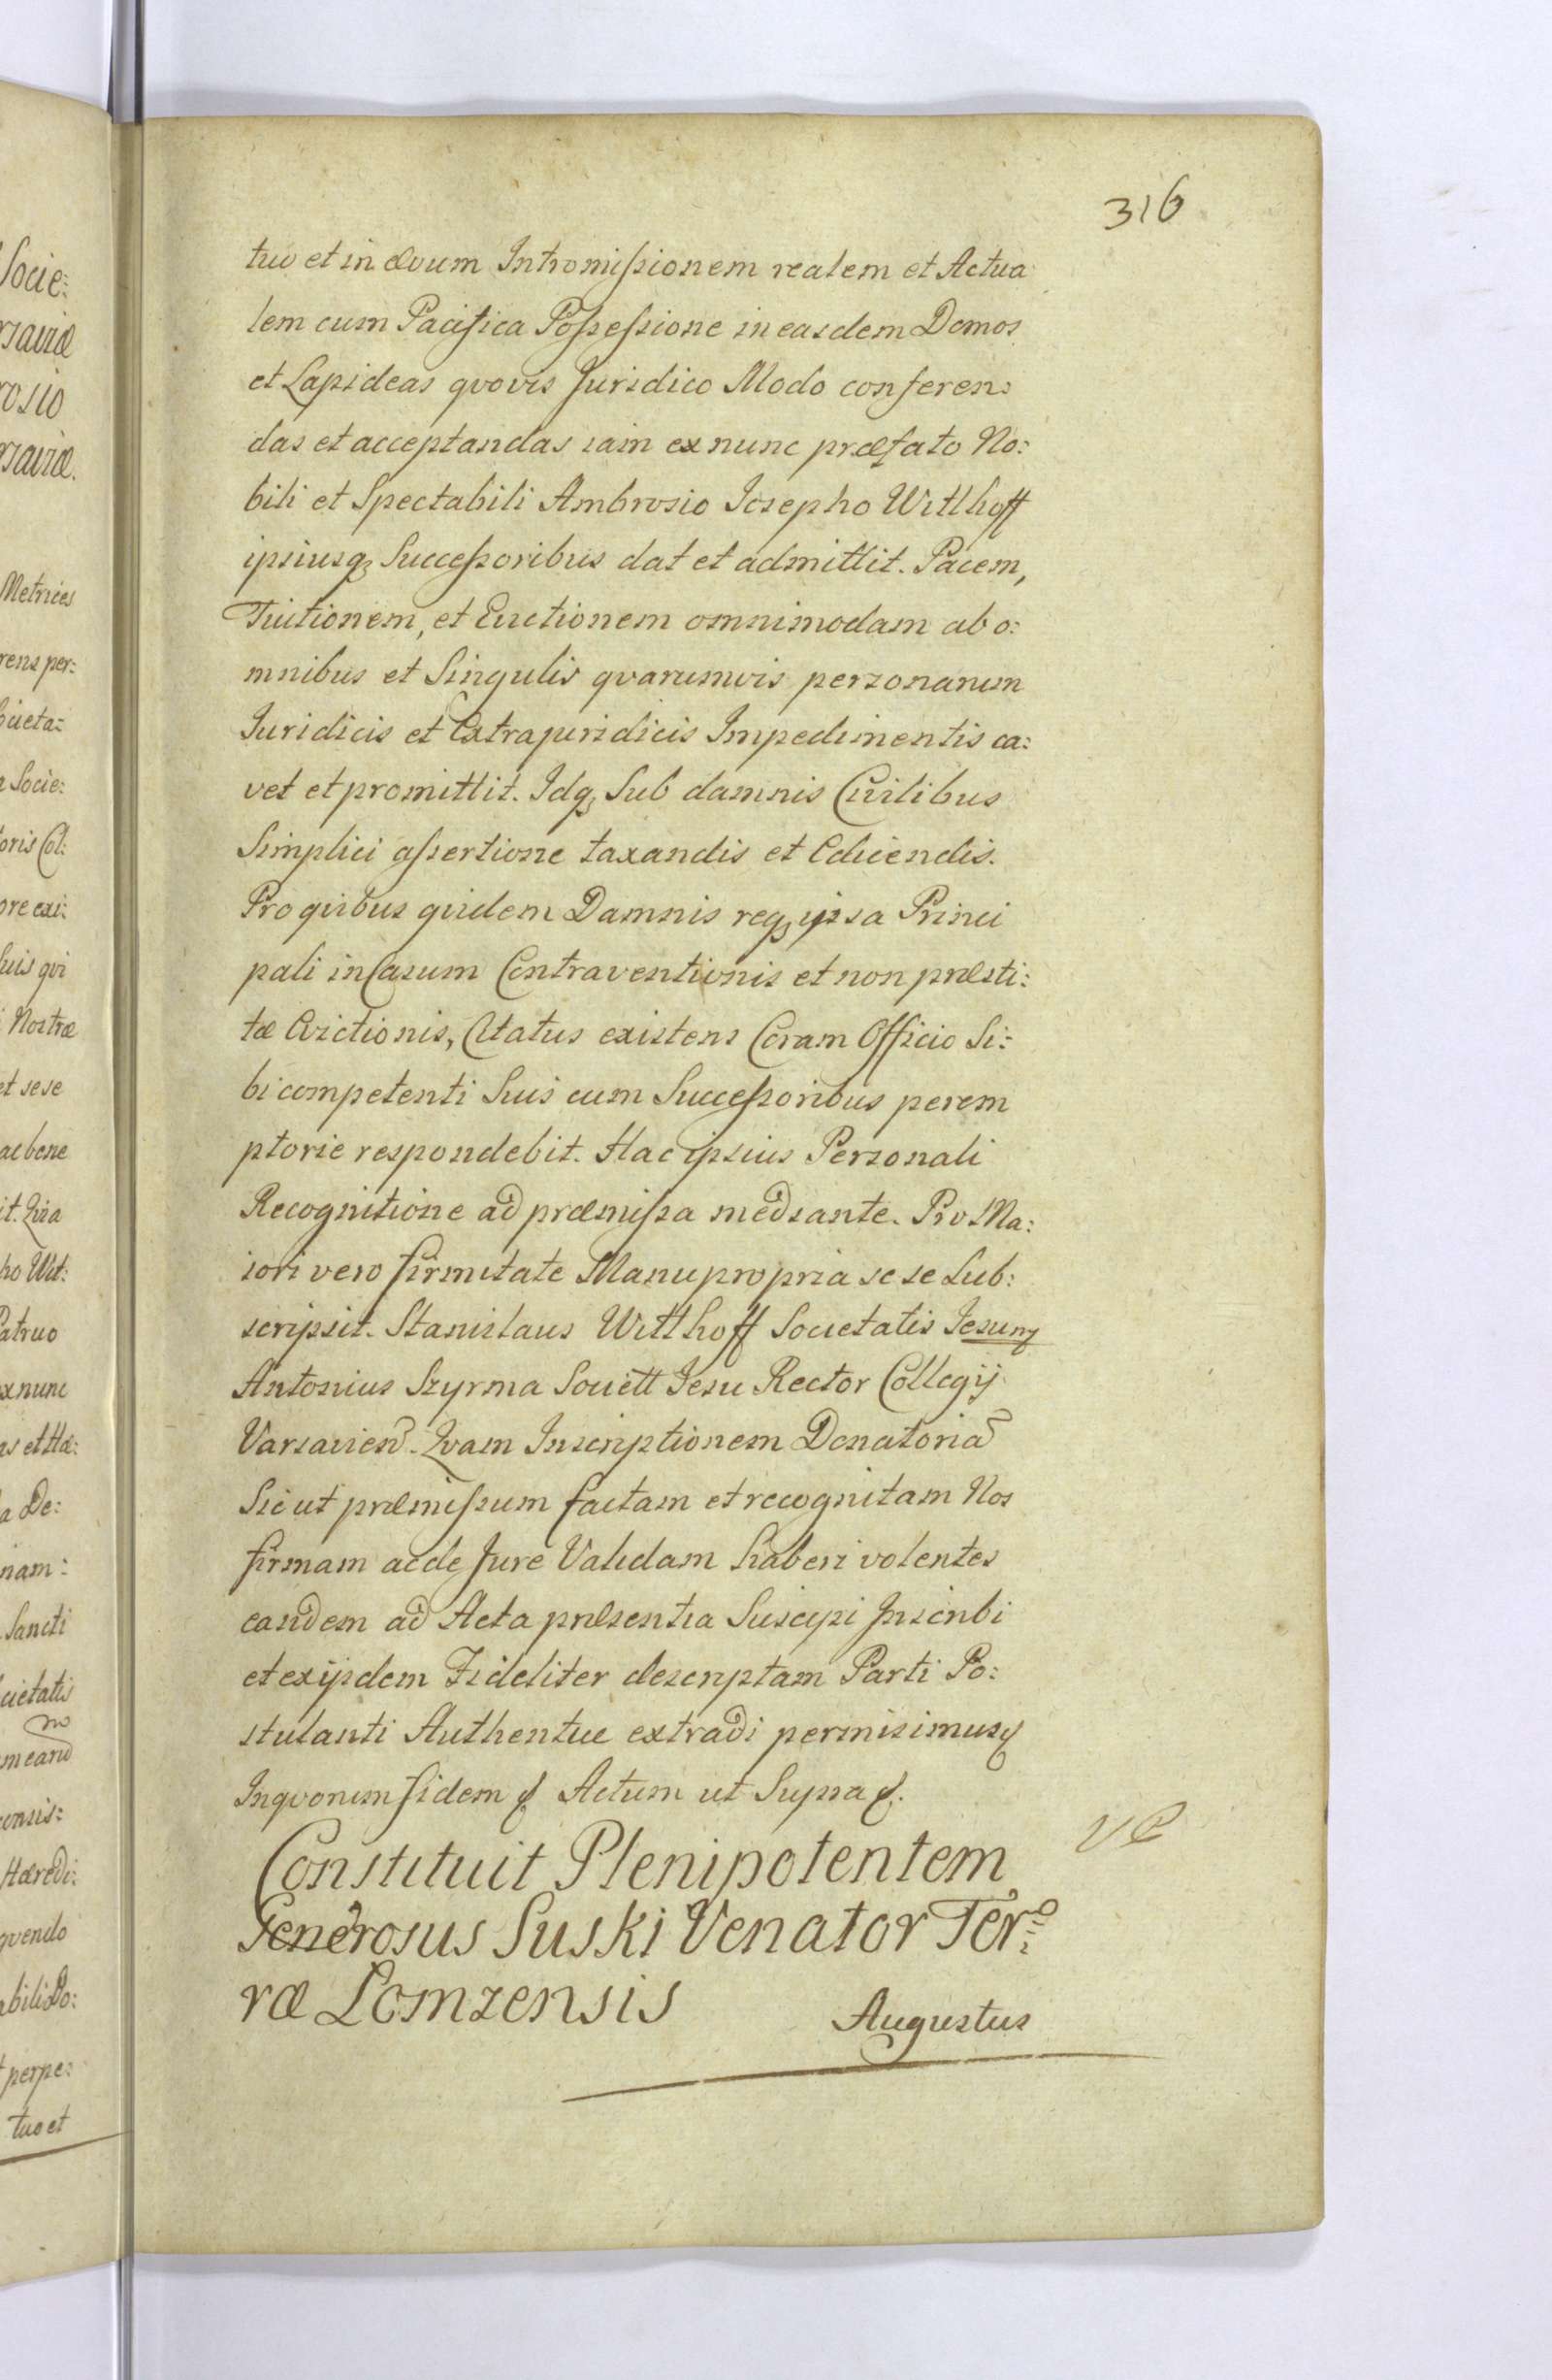 316
tuo et in ævum Intromissionem realem et Actua
lem cum Pacifica Possessione in easdem Domos
et Lapideas qvovis Juridico Modo conferen:
das et acceptandas iam ex nunc præfato No:
bili et Spectabili Ambrosio Josepho Witthoff
ipsiusq; Successoribus dat et admittit. Pacem,
Tuitionem, et Evictionem omnimodam ab o:
mnibus et Singulis qvarumvis personarum
Juridicis et Extrajuridicis Impedimentis ca:
vet et promittit. Idq; Sub damnis Civilibus
Simplici assertione taxandis et Edicendis.
Pro qvibus qvidem Damnis req; ipsa Princi
pali in Casum Contraventionis et non præsti:
tæ Evictionis, Citatus existens Coram Officio Si:
bi competenti Suis cum Successoribus perem
ptorie respondebit. Hac ipsius Personali
Recognitione ad præmissa mediante. Pro Ma:
iori vero firmitate Manu propria sese Sub:
scripsit. Stanislaus Witthoff Societatis Jesu
Antonius Szyrma Societt Jesu Rector Collegij
Varsavien. Qvam Inscriptionem Donatoria
Sic ut præmissum factam et recognitam Nos
firmam ac de Jure Validam haberi volentes
eandem ad Acta præsentia Suscipi Inscribi
et ex ijsdem Fideliter descriptam Parti Po:
stulanti Authentice extradi permisimus
In qvorum fidem Actum ut Supra
Constituit Plenipotentem
Generosus Suski Venator Ter:
ræ Lomzensis
Augustus
Socie:
Metrices
rens per:
Socie:
oris Col:
Suis qvi
Nostræ
et sese
ac bene
ho Wit:
Patruo
ex nunc
as et Hæ:
De:
nam:
Sancti
cietatis
Hæredi:
perpe:
tuo et